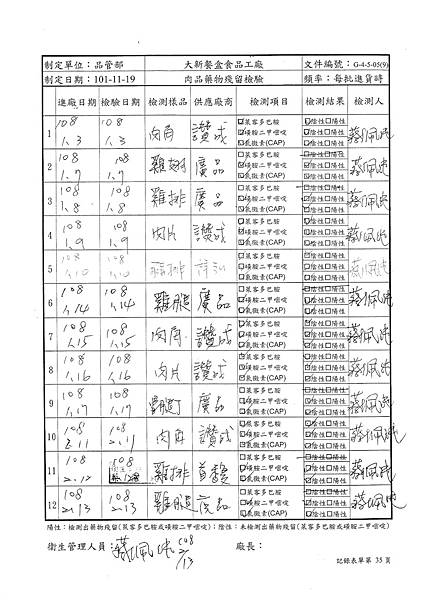 制定單位：品管部 大新餐盒食品工廠 文件編號：G-4-5-05(9)
制定日期：101-11-19 肉品藥物殘留檢驗 頻率：每批進貨時
進廠日期 檢驗日期 檢測樣品 供應廠商 檢測項目 檢測結果 檢測人
1 108 1.3 108 1.3 肉角 讚成 萊客多巴胺 磺胺二甲嘧啶 氯黴素(CAP) 陰性 陽性 陰性 陽性 陰性 陽性
2 108 1.7 108 1.7 雞翅 廣品 萊客多巴胺 磺胺二甲嘧啶 氯黴素(CAP) 陰性 陽性 陰性 陽性 陰性 陽性
3 108 1.8 108 1.8 雞排 廣品 萊客多巴胺 磺胺二甲嘧啶 氯黴素(CAP) 陰性 陽性 陰性 陽性 陰性 陽性
4 108 1.9 108 1.9 肉片 讚成 萊客多巴胺 磺胺二甲嘧啶 氯黴素(CAP) 陰性 陽性 陰性 陽性 陰性 陽性
5 108 1.10 108 1.10 萊客多巴胺 磺胺二甲嘧啶 氯黴素(CAP) 陰性 陽性 陰性 陽性 陰性 陽性
6 108 1.14 108 1.14 雞腿 廣品 萊客多巴胺 磺胺二甲嘧啶 氯黴素(CAP) 陰性 陽性 陰性 陽性 陰性 陽性
7 108 1.15 108 1.15 肉角 讚成 萊客多巴胺 磺胺二甲嘧啶 氯黴素(CAP) 陰性 陽性 陰性 陽性 陰性 陽性
8 108 1.16 108 1.16 肉片 讚成 萊客多巴胺 磺胺二甲嘧啶 氯黴素(CAP) 陰性 陽性 陰性 陽性 陰性 陽性
9 108 1.17 108 1.17 廣品 萊客多巴胺 磺胺二甲嘧啶 氯黴素(CAP) 陰性 陽性 陰性 陽性 陰性 陽性
10 108 2.11 108 2.11 肉角 讚成 萊客多巴胺 磺胺二甲嘧啶 氯黴素(CAP) 陰性 陽性 陰性 陽性 陰性 陽性
11 108 2.12 108 雞排 萊客多巴胺 磺胺二甲嘧啶 氯黴素(CAP) 陰性 陽性 陰性 陽性 陰性 陽性
12 108 2.13 108 2.13 雞腿 廣品 萊客多巴胺 磺胺二甲嘧啶 氯黴素(CAP) 陰性 陽性 陰性 陽性 陰性 陽性
陽性：檢測出藥物殘留(萊客多巴胺或磺胺二甲嘧啶)；陰性：未檢測出藥物殘留(萊客多巴胺或磺胺二甲嘧啶)
衛生管理人員： 108 2/13 廠長：
記錄表單第 35 頁